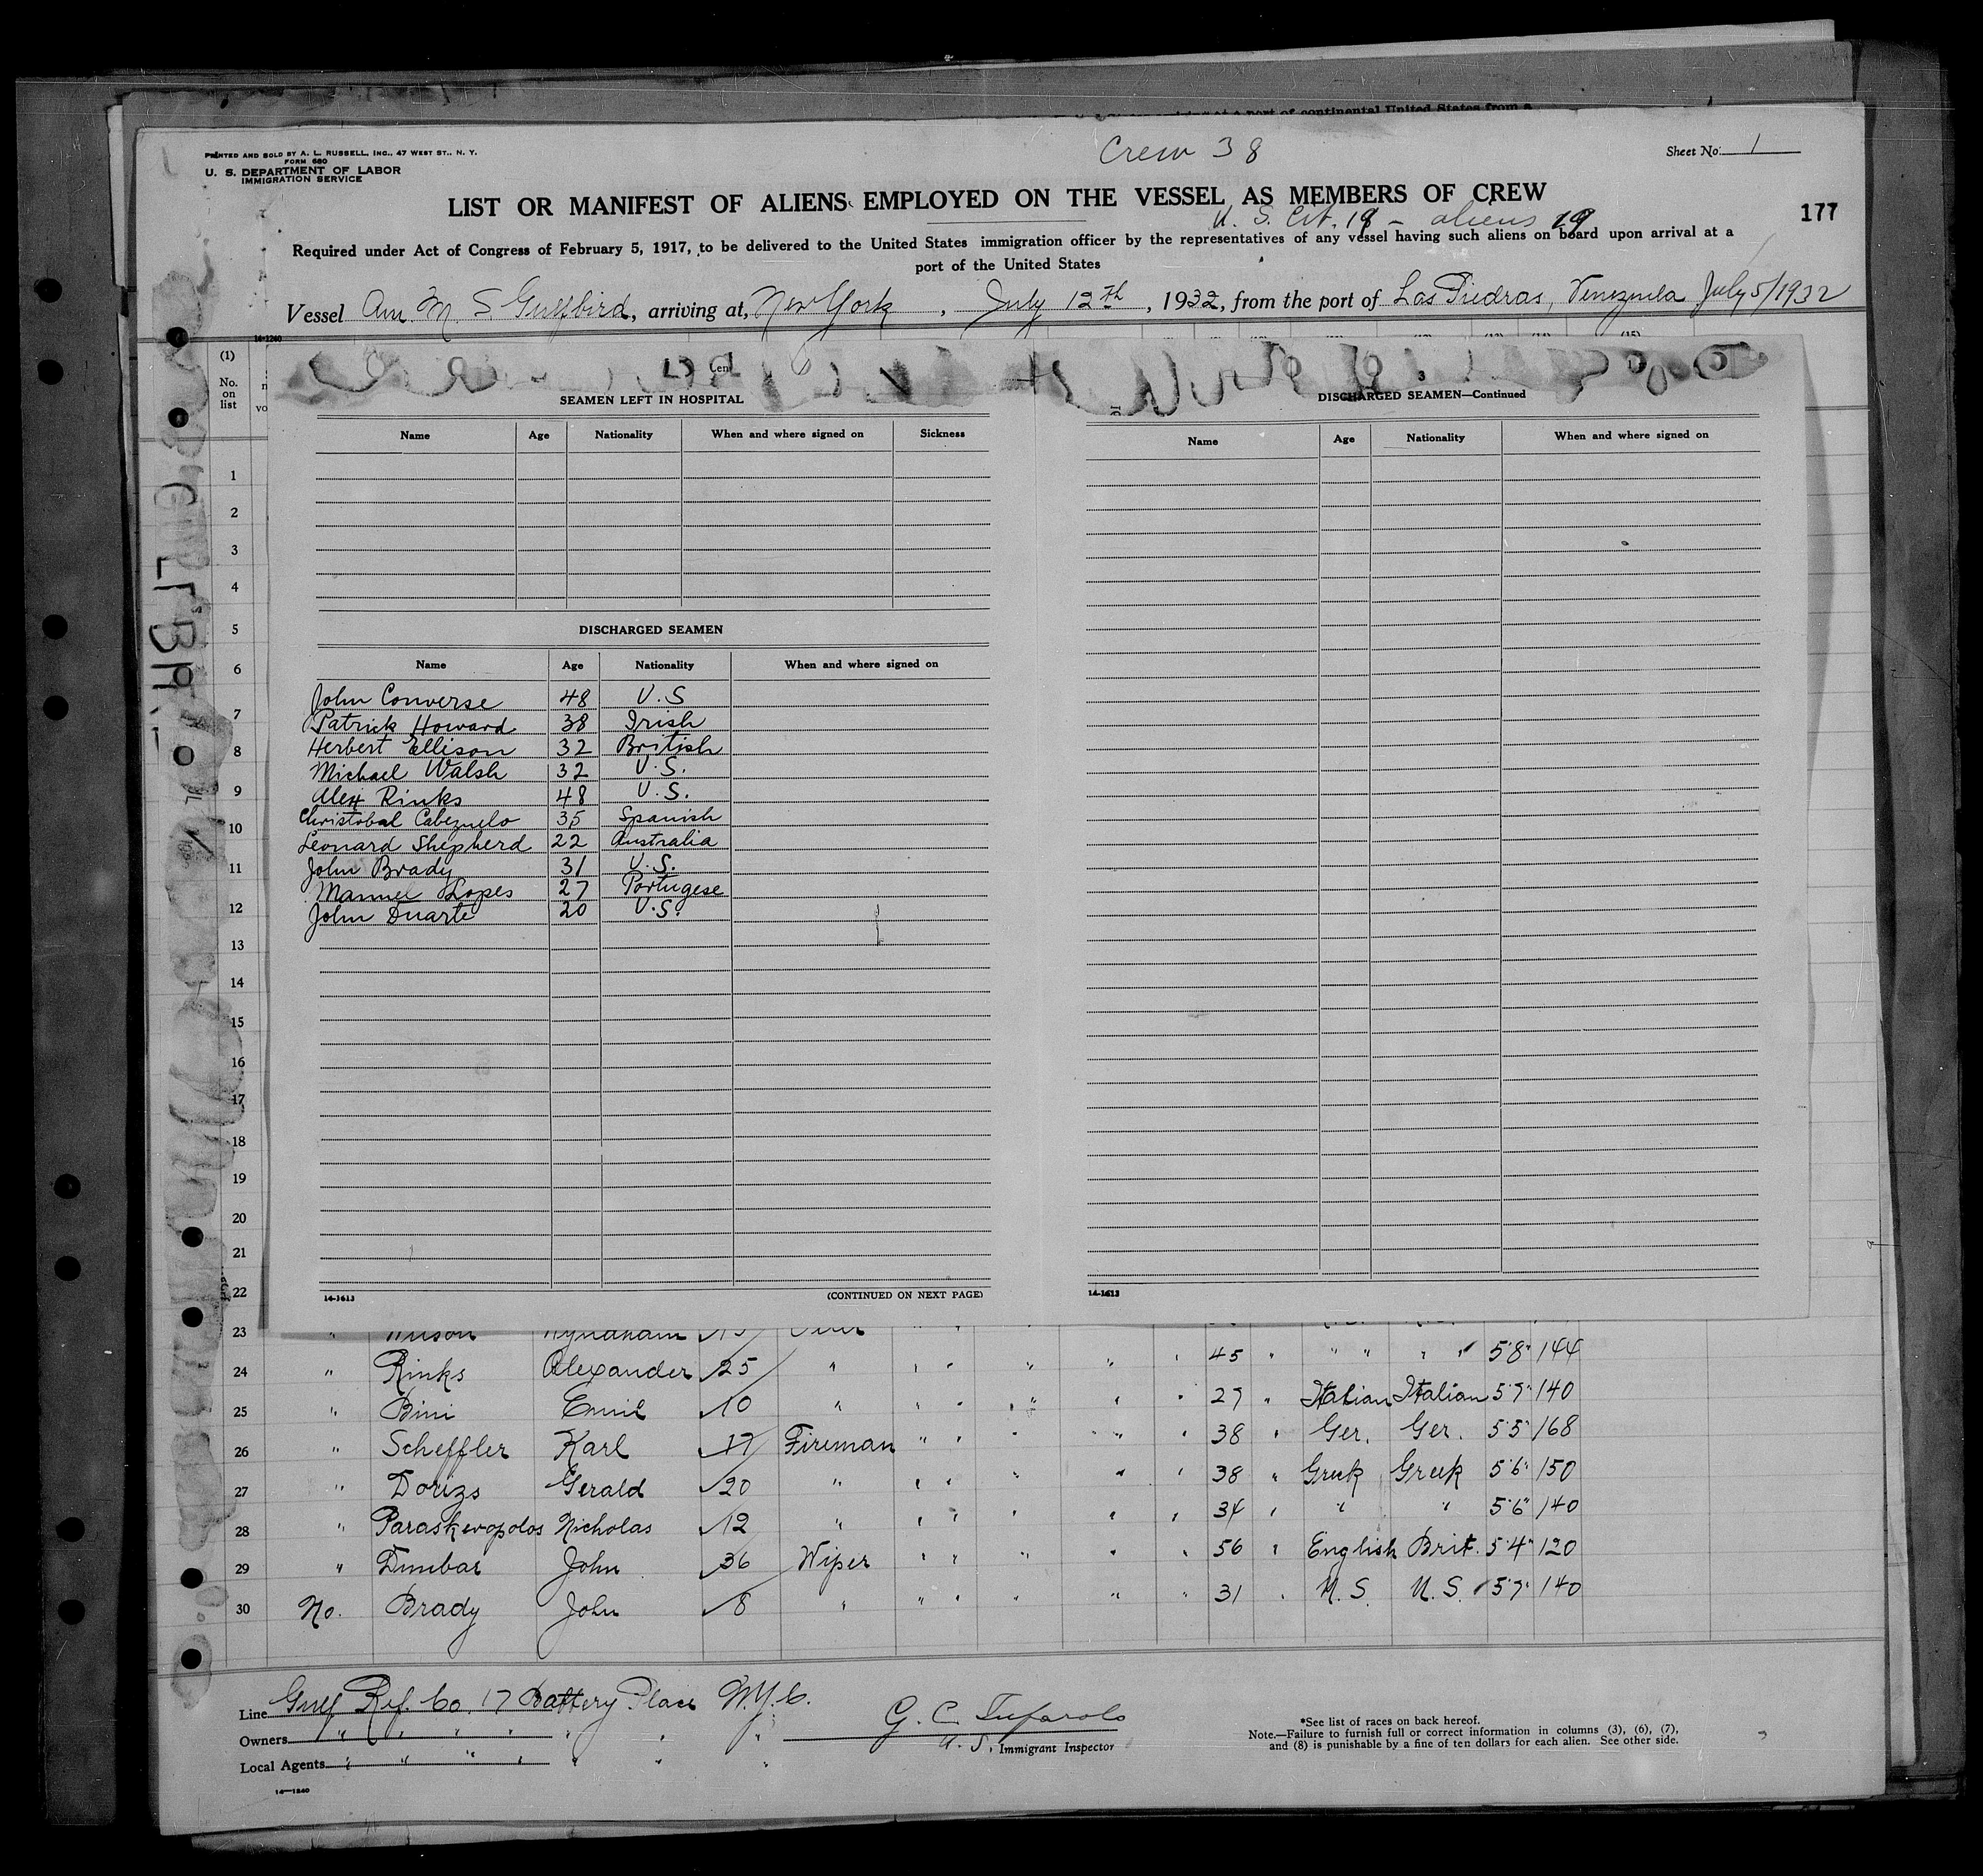 PRINTED AND SOLD BY A. L. RUSSELL, INC., 47 WEST ST., N. Y.
FORM 680
U. S. DEPARTMENT OF LABOR
IMMIGRATION SERVICE
Crew 38
Sheet No. 1
LIST OR MANIFEST OF ALIENS EMPLOYED ON THE VESSEL AS MEMBERS OF CREW
177
U. S. Cit. 19 - aliens 19
Required under Act of Congress of February 5, 1917, to be delivered to the United States immigration officer by the representatives of any vessel having such aliens on board upon arrival at a
port of the United States
Vessel Am. M. S Gulfbird, arriving at, New York, July 12th, 1932, from the port of Las Piedras, Venezuela July 5/1932
14-1240
(1)
No. on list
SEAMEN LEFT IN HOSPITAL
Name Age Nationality When and where signed on Sickness
DISCHARGED SEAMEN
Name Age Nationality When and where signed on
John Converse 48 U.S
Patrick Howard 38 Irish
Herbert Ellison 32 British
Michael Walsh 32 U.S.
Alex Rinks 48 U.S.
Christobal Cabezuelo 35 Spanish
Leonard Shepherd 22 Australia
John Brady 31 U.S.
Manuel Lopes 27 Portugese
John Duarte 20 U.S.
14-1613
(CONTINUED ON NEXT PAGE)
3
DISCHARGED SEAMEN—Continued
Name Age Nationality When and where signed on
14-1613
1
2
3
4
5
6
7
8
9
10
11
12
13
14
15
16
17
18
19
20
21
22
23
24 " Rinks Alexander 25 " " " " " " 45 " " " " " 5'8" 144
25 " Bini Emil 10 " " " " " " 27 " Italian Italian 5'7" 140
26 " Scheffler Karl 17 Fireman " " " " " 38 " Ger. Ger. 5'5" 168
27 " Dorizs Gerald 20 " " " " " " 38 " Greek Greek 5'6" 150
28 " Paraskevopolos Nicholas 12 " " " " " " 34 " " " 5'6" 140
29 " Dunbar John 36 Wiper " " " " " 56 " English Brit. 5'4" 120
30 No. Brady John 8 " " " " " " 31 " U.S. U.S. 5'7" 140
Line Gulf Ref. Co. 17 Battery Place N.Y.C.
Owners " " " " " " "
Local Agents " " " " " " "
14—1240
G. C. Tufarolo
U. S. Immigrant Inspector
*See list of races on back hereof.
Note.—Failure to furnish full or correct information in columns (3), (6), (7),
and (8) is punishable by a fine of ten dollars for each alien. See other side.